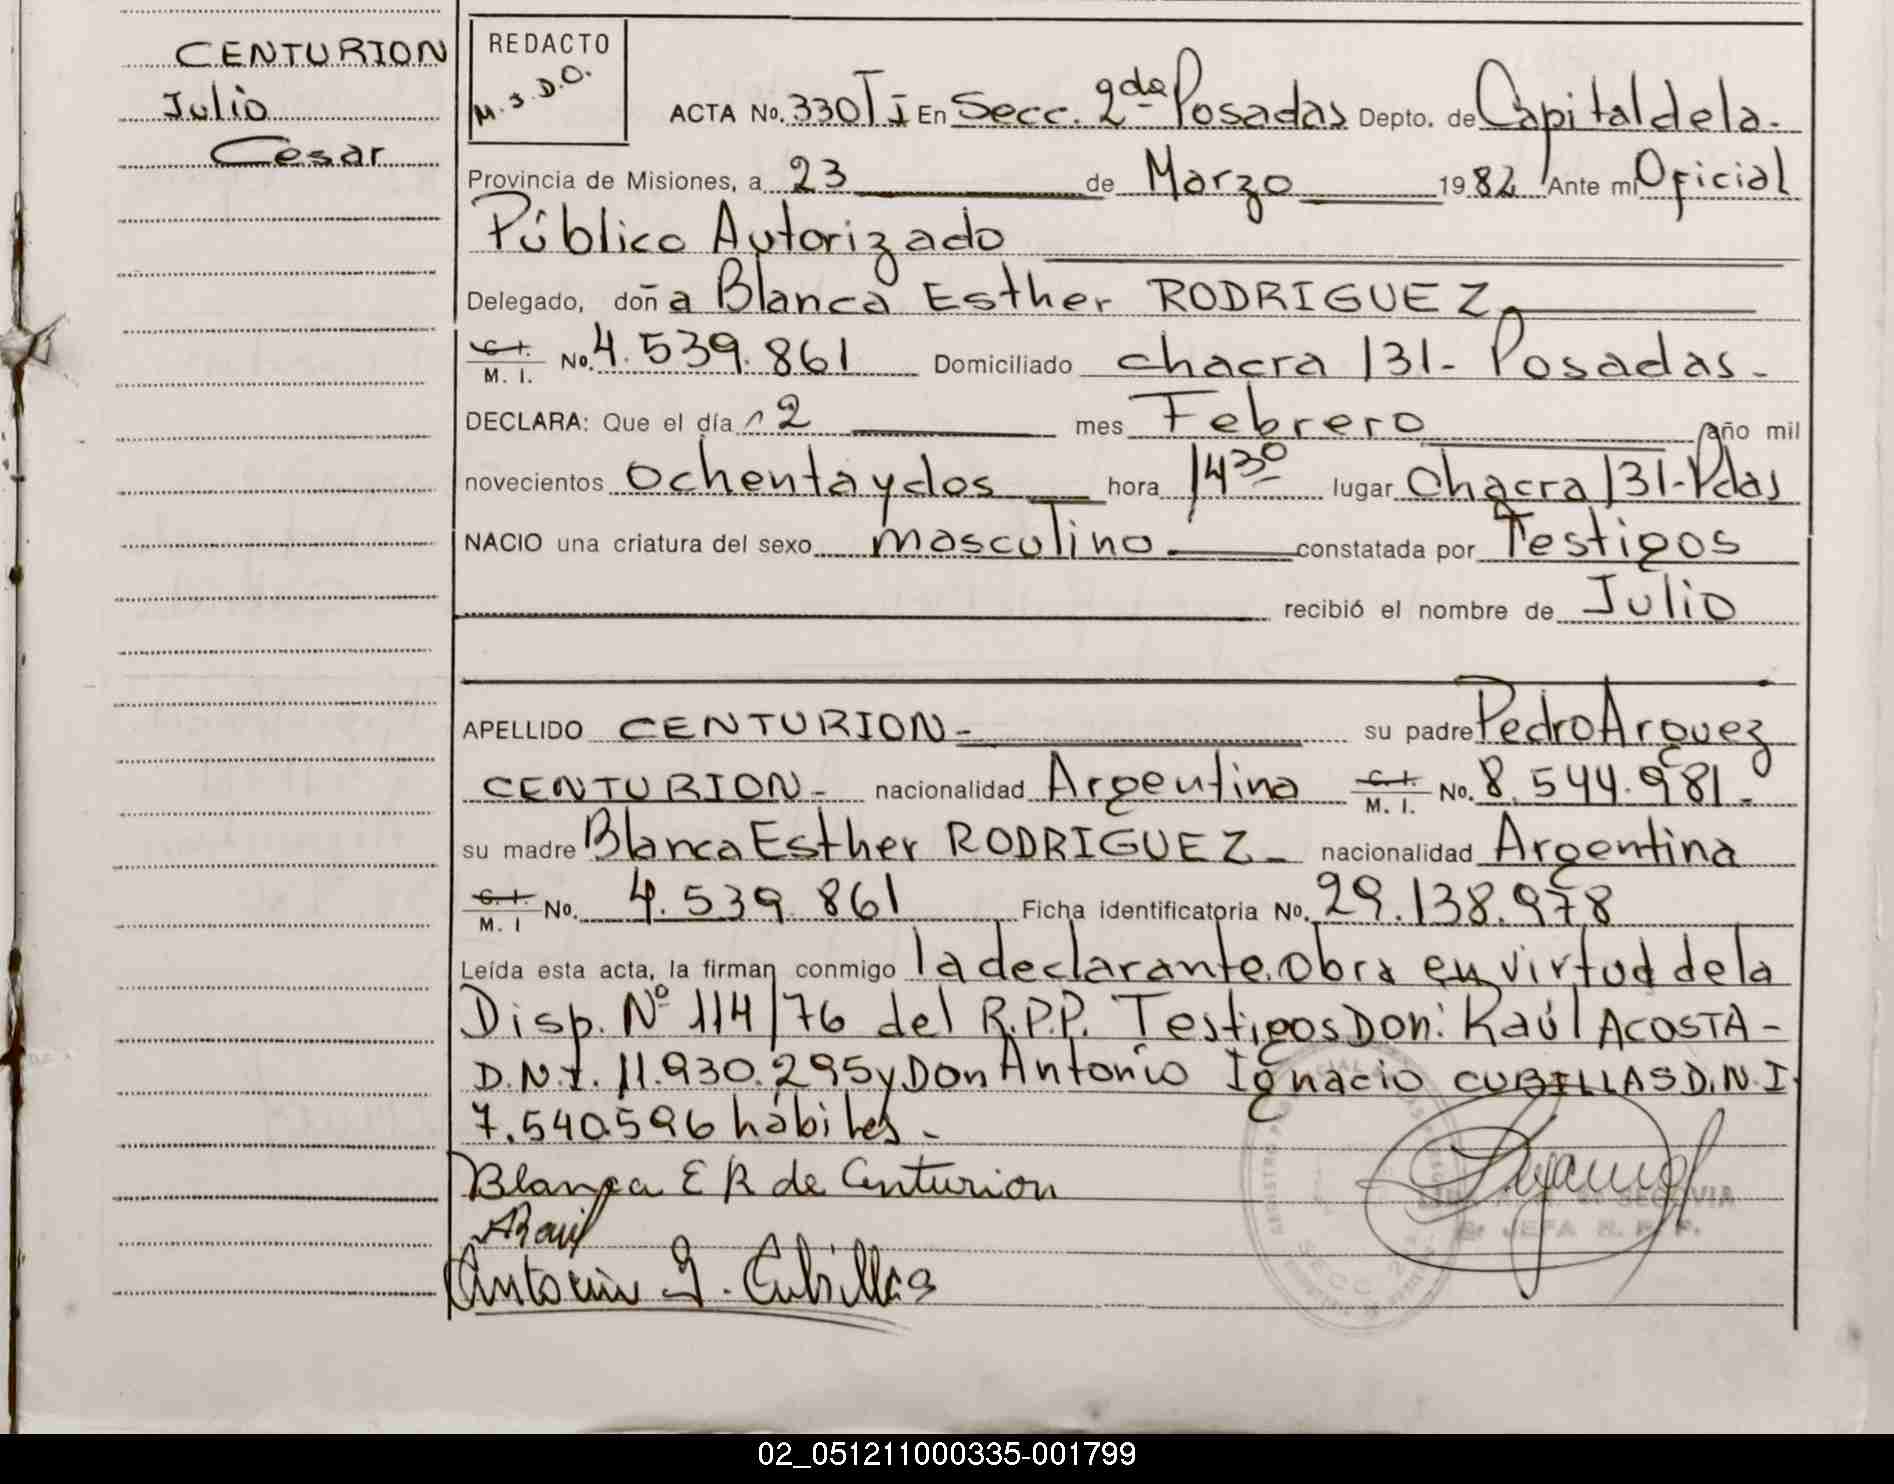 CENTURION
Julio
Cesar
REDACTO
M.J.D.O.
ACTA No. 330 T I En Secc. 2da Posadas Depto. de Capital de la.
Provincia de Misiones, a 23 de Marzo 1982 Ante mi Oficial
Público Autorizado
Delegado, doña Blanca Esther RODRIGUEZ
C.I. M. I. No. 4.539.861 Domiciliado chacra 131- Posadas-
DECLARA: Que el día 12 mes Febrero año mil
novecientos ochenta y dos hora 14 30 lugar Chacra 131-Pdas
NACIO una criatura del sexo masculino constatada por Testigos
recibió el nombre de Julio
APELLIDO CENTURION- su padre Pedro Arquez
CENTURION- nacionalidad Argentina C.I. M. I. No. 8.544.981-
su madre Blanca Esther RODRIGUEZ- nacionalidad Argentina
C.I. M. I No. 4.539.861 Ficha identificatoria No. 29.138.978
Leída esta acta, la firman conmigo la declarante. Obra en virtud de la
Disp. Nº 114/76 del R.P.P. Testigos Don: Raúl ACOSTA-
D.N.I. 11.930.295 y Don Antonio Ignacio CUBILLAS D.N.I.
7.540.596 hábiles.-
Blanca E R de Centurion
Antonio I. Cubillas
SEGOVIA
JEFA R. P. P.
02_051211000335-001799